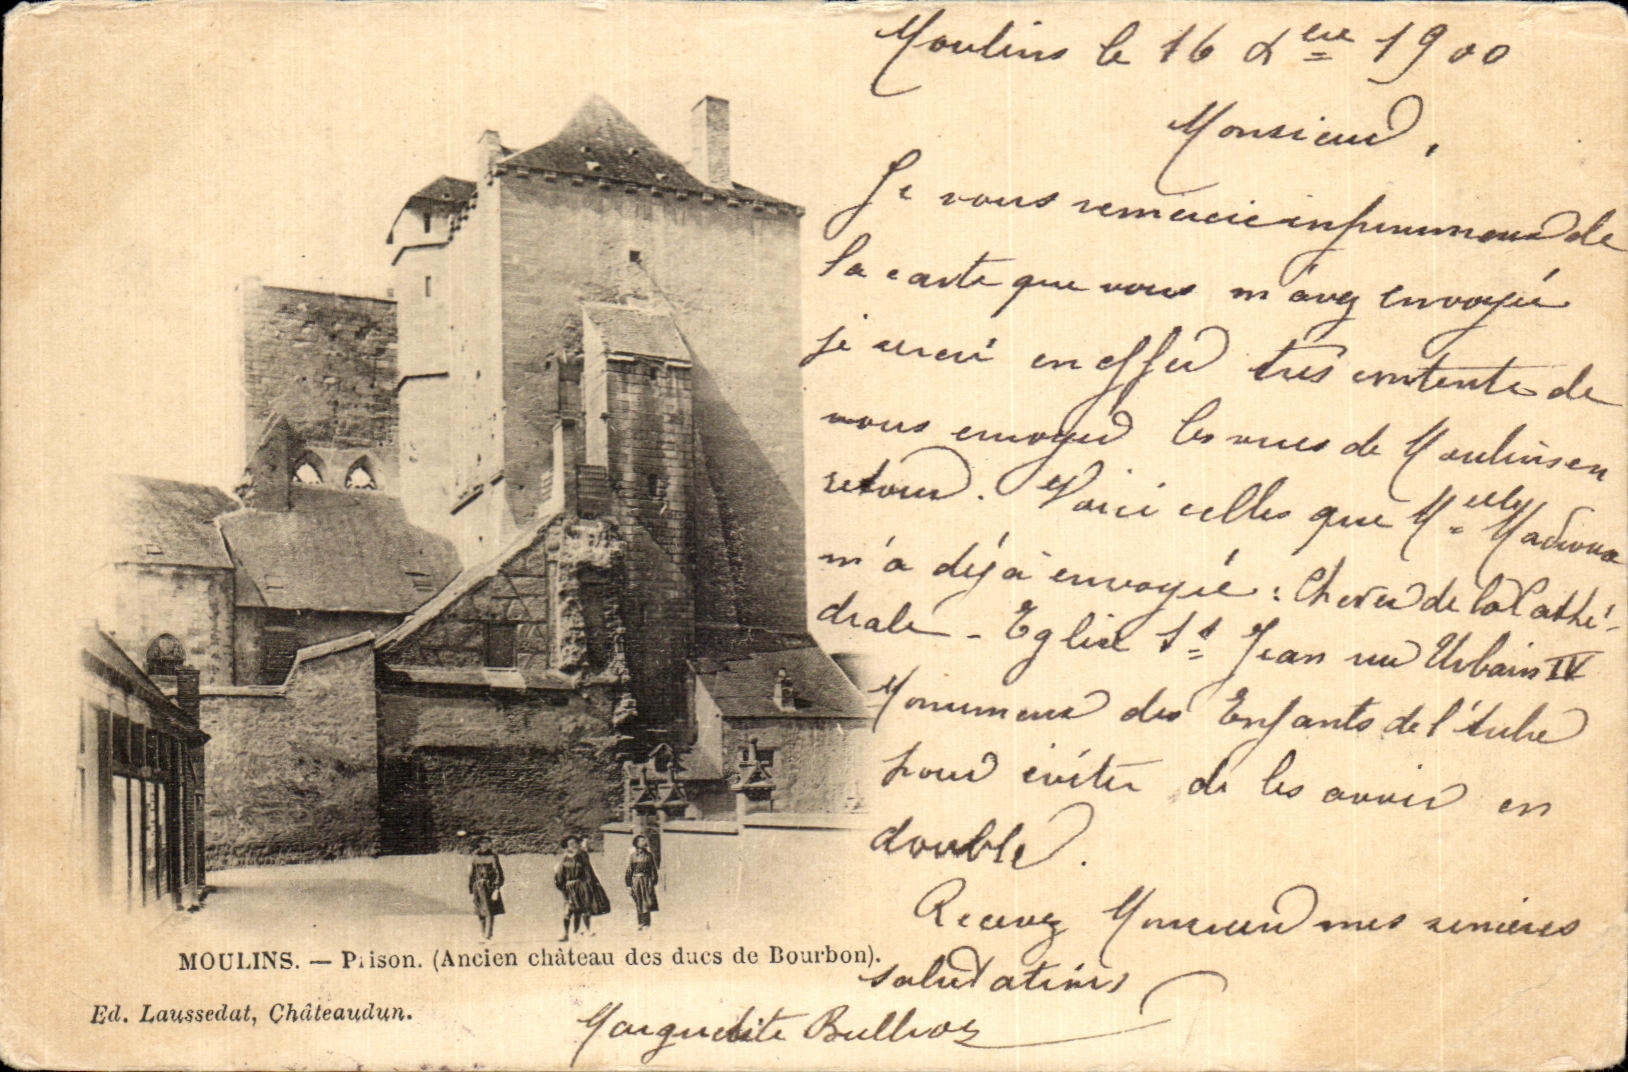 Moulins le 16 Xbre 1900
Monsieur,
Je vous remercie infiniment de
la carte que vous m'avez envoyée
je serai en effet très contente de
vous envoyer les vues de Moulins en
retour. Voici celles que Melle
m'a déjà envoyée : Chevet de la Cathé-
drale - Eglise St Jean rue Urbain IV
Monument des Enfants de l'Aube
pour éviter de les avoir en
double.
Recevez Monsieur mes sincères
salutations
Marguerite
MOULINS. — Prison. (Ancien château des ducs de Bourbon).
Ed. Laussedat, Châteaudun.